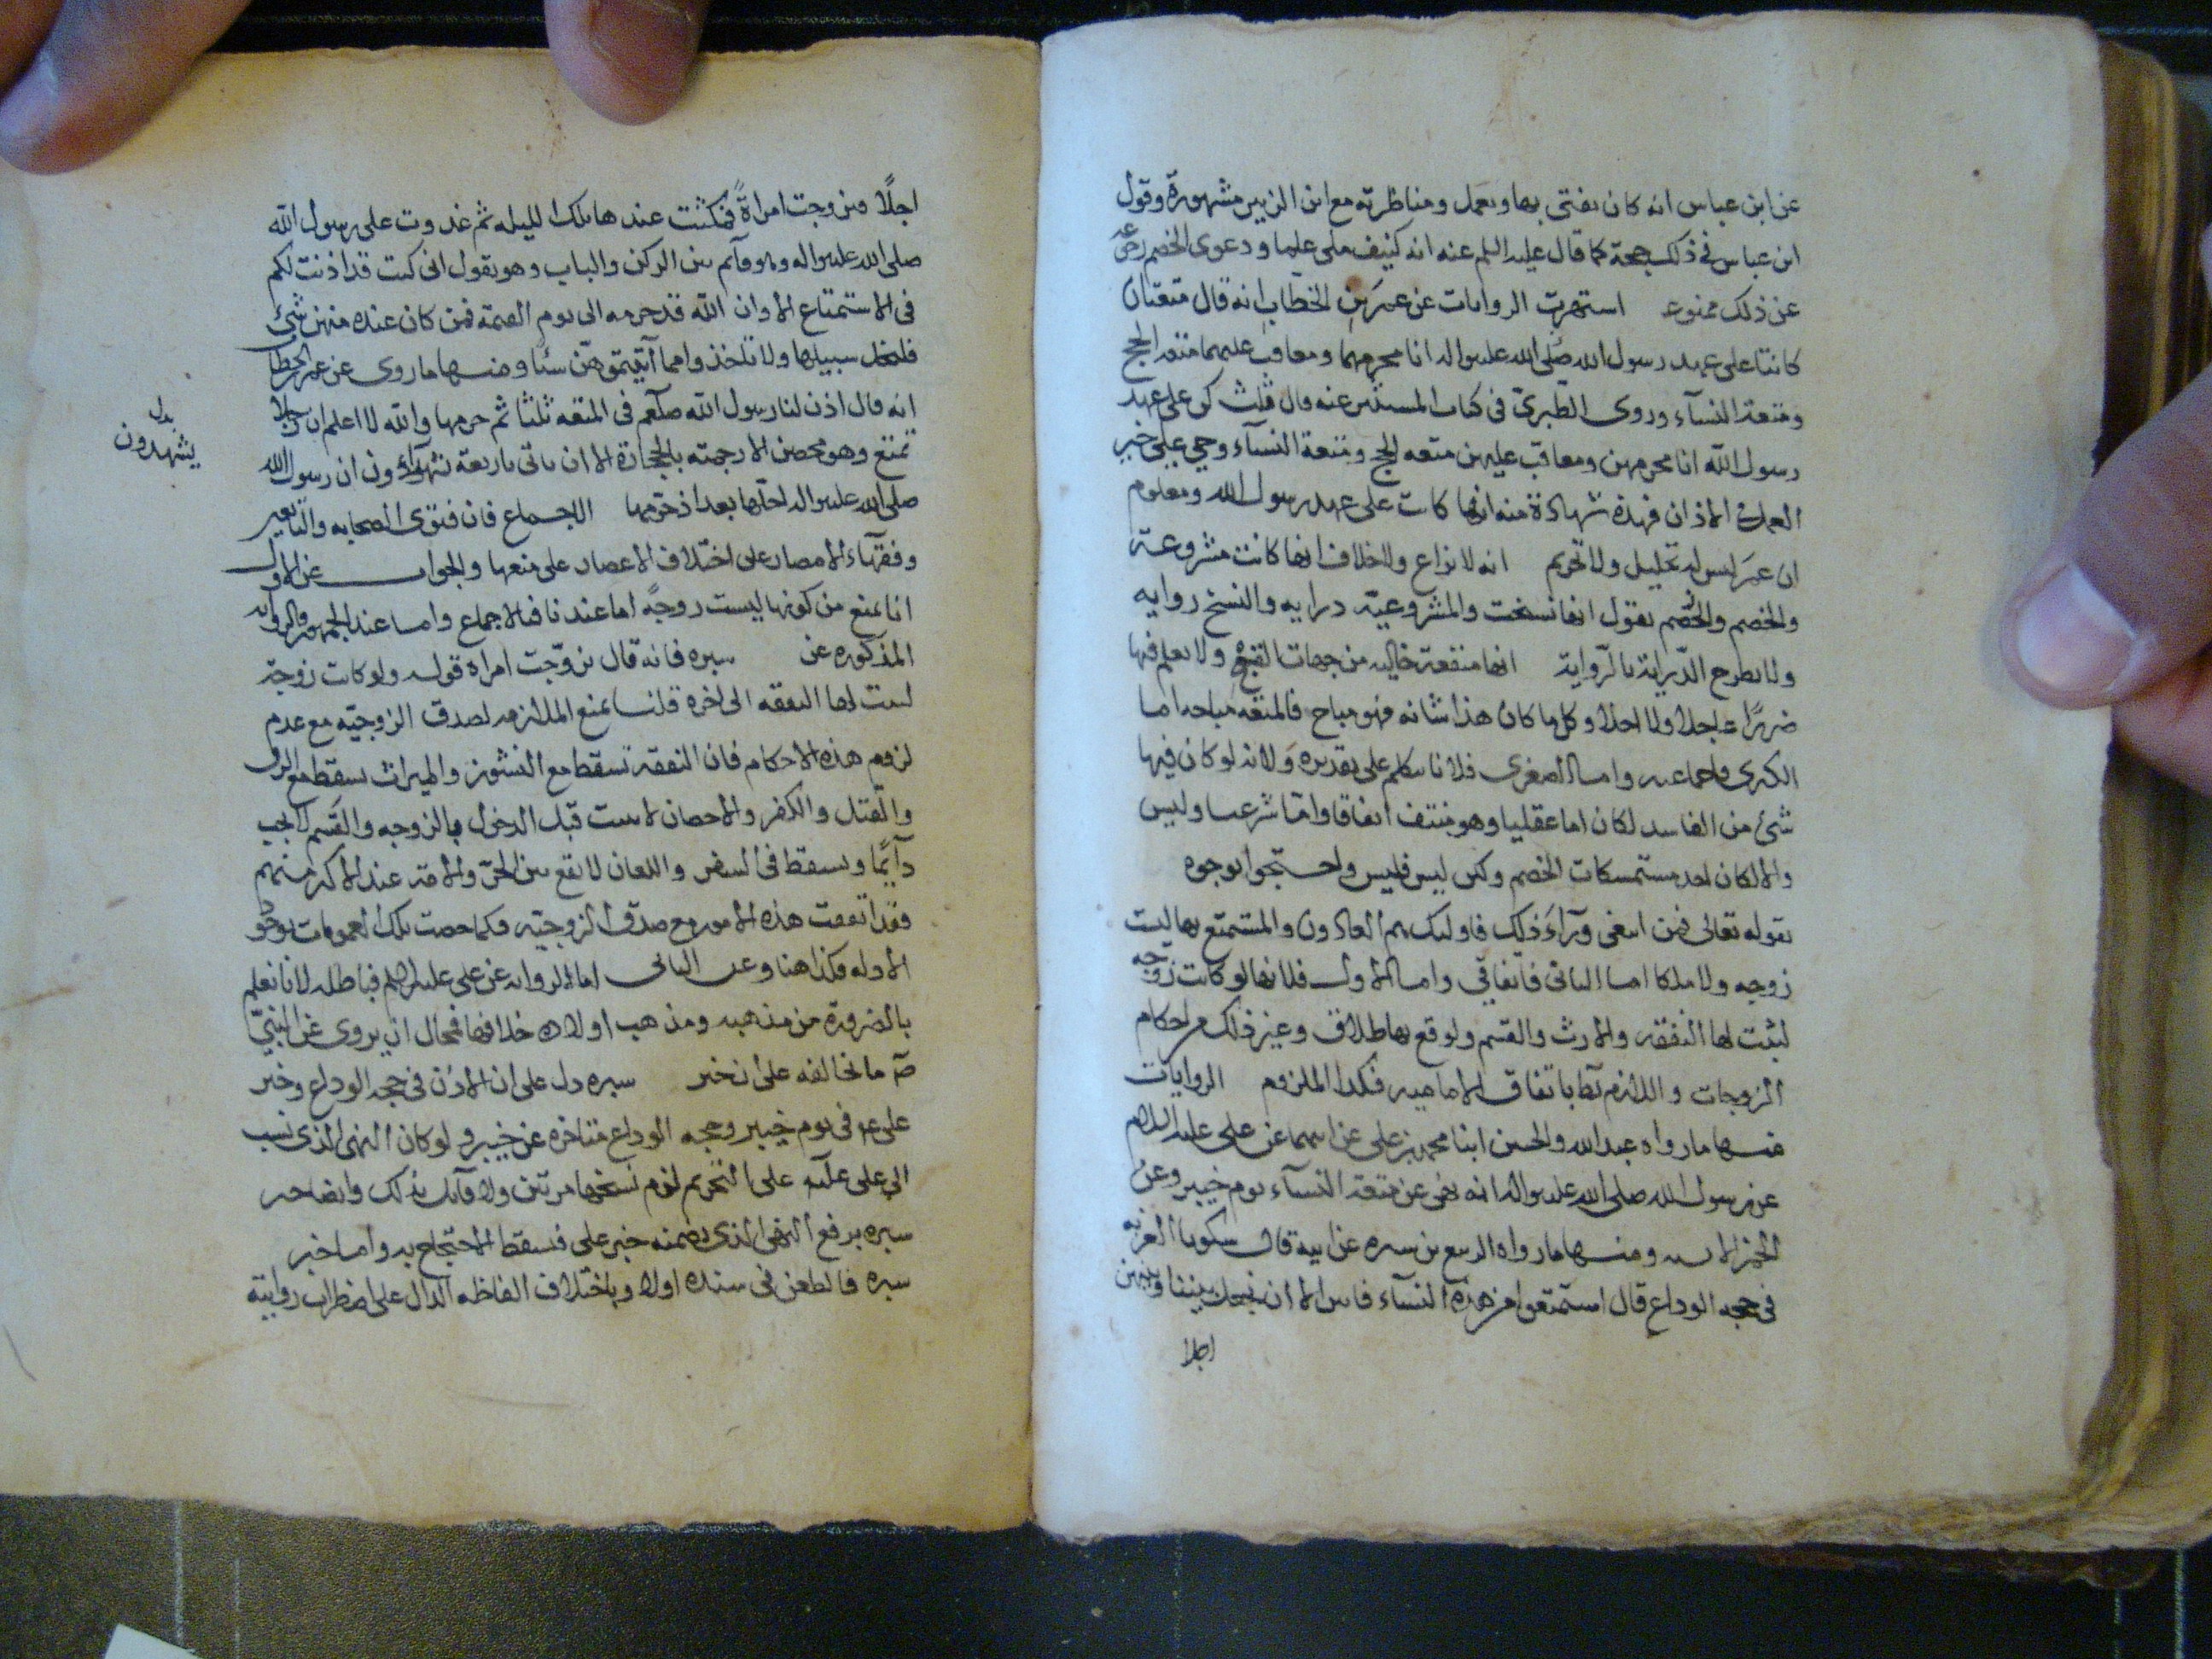 عن ابن عباس انه كان يفتى بها ويعمل ومناظرته مع ابن الزبير مشهورة وقول
ابن عباس فى ذلك حجة كما قال عليه السلم عنه انه كنيف ملى علما ودعوى الخصم رجوعه
عن ذلك ممنوع استهرت الروايات عن عمر بن الخطاب انه قال متعتان
كانتا على عهد رسول الله صلى الله عليه واله انا محرمهما ومعاقب عليهما متعة الحج
ومتعة النساء وروى الطبرى فى كتاب المسترشد عنه قال ثلث كن على عهد
رسول الله انا محرمهن ومعاقب عليهن متعه الحج ومتعة النسآء وحى على خير
العمل فى الاذان فهذه شهادة منه انها كانت على عهد رسول الله ومعلوم
ان عمر ليس له تحليل ولا تحريم انه لا نزاع ولا خلاف انها كانت مشروعة
والخصم والخصم يقول انها نسخت والمشروعيّة درايه والنسخ روايه
ولا يطرح الدّراية بالرّواية انها منفعة خاليه من جهات القبح ولا يعلم فيها
ضررًا عاجلا ولا اجلا وكل ما كان هذا شانه فهو مباح فالمتعه مباحه اما
الكبرى فاجماعيه واما الصغرى فلانا نتكلم على تقديره ولانه لو كان فيها
شئ من المفاسد لكان اما عقليا وهو منتف اتفاقا وامّا شرعيا وليس
والا لكان احد مستمسكات الخصم وكن ليس فليس واحتجوا بوجوه
بقوله تعالى فمن ابتغى ورآءَ ذلك فاولئك هم العادون والمستمتع بها ليست
زوجه ولا ملكا اما الثانى فاتفاقى واما الاول فلانها لو كانت زوجه
لثبت لها النفقه والارث والقسم ولوقع بها طلاق وغير ذلك من احكام
الزوجات واللازم بط باتفاق الاماميه فكذا الملزوم الروايات
منها ما رواه عبد الله والحسن ابنا محمد بن على عن ابيهما عن على عليه السلام
عن رسول الله صلى الله عليه واله انه نهى عن متعة النسآء يوم خيبر وعن
الحمر الانسيه ومنها ما رواه الربيع بن سبره عن ابيه قال شكونا العزبه
فى حجه الوداع قال استمتعوا من هذه النسآء فابين الا ان نجعل بيننا وبينهن
اجلا
اجلًا فتزوجت امراةً فمكثت عندها تلك الليله ثم غدوت على رسول الله
صلى الله عليه واله وهو قآئم بين الركن والباب وهو يقول انى كنت قد اذنت لكم
فى الاستمتاع الا وان الله قد حرمه الى يوم القيمة فمن كان عنده منهن شئ
فليخل سبيلها ولا تاخذوا مما آتيتموهنّ شيئا ومنها ما روى عن عمر بن الخطاب
انه قال اذن لنا رسول الله صلعم فى المتعه ثلثا ثم حرمها والله لا اعلم ان رجلا
تمتع وهو محصن الا رجمته بالحجارة الا ان ياتى باربعة شهدآء ون ان رسول الله
بدل
يشهدون
صلى الله عليه واله احلها بعد اذ حرّمها الاجماع فان فتوى الصحابه والتابعين
وفقهآء الامصار على اختلاف الاعصار على منعها والجواب عن الاول
انا نمنع من كونها ليست زوجةً اما عندنا فبالاجماع واما عند الجمهور فالروايه
المذكوره عن سبره فانه قال تزوّجت امراة قوله ولو كانت زوجة
لثبت لها النفقه الى اخره قلنا نمنع الملازمه لصدق الزوجيّه مع عدم
لزوم هذه الاحكام فان النفقة تسقط مع النشوز والميراث يسقط مع الرق
والقتل والكفر والاحصان لا يثبت قبل الدخول بالزوجه والقسم لا يجب
دآيمًا ويسقط فى السفر واللعان لا يقع بين الحرّ والامة عند الاكثر منهم
فقد اتفقت هذه الامور مع صدق الزوجيّه فكما خصت تلك العمومات بوجود
الادله فكذا هنا وعن الثانى اما الروايه عن على عليه السلم فباطله لانا نعلم
بالضرورة من مذهبه ومذهب اولاده خلافها فمحال ان يروى عن النبىّ
صآ ما يخالفه على ان خبر سبره دل على ان الاذن فى حجه الوداع وخبر
على ع فى يوم خيبر وحجه الوداع متاخره عن خيبر ولو كان النهى الذى نسب
الى على عليه على التحريم لزم نسخها مرتين ولا قآئل بذلك وايضا خبر
سبره يرفع النهى الذى يضمنه خبر على فسقط الاحتجاج به واما خبر
سبره فالطعن فى سنده اولا وباختلاف الفاظه الدال على اضطراب روايته